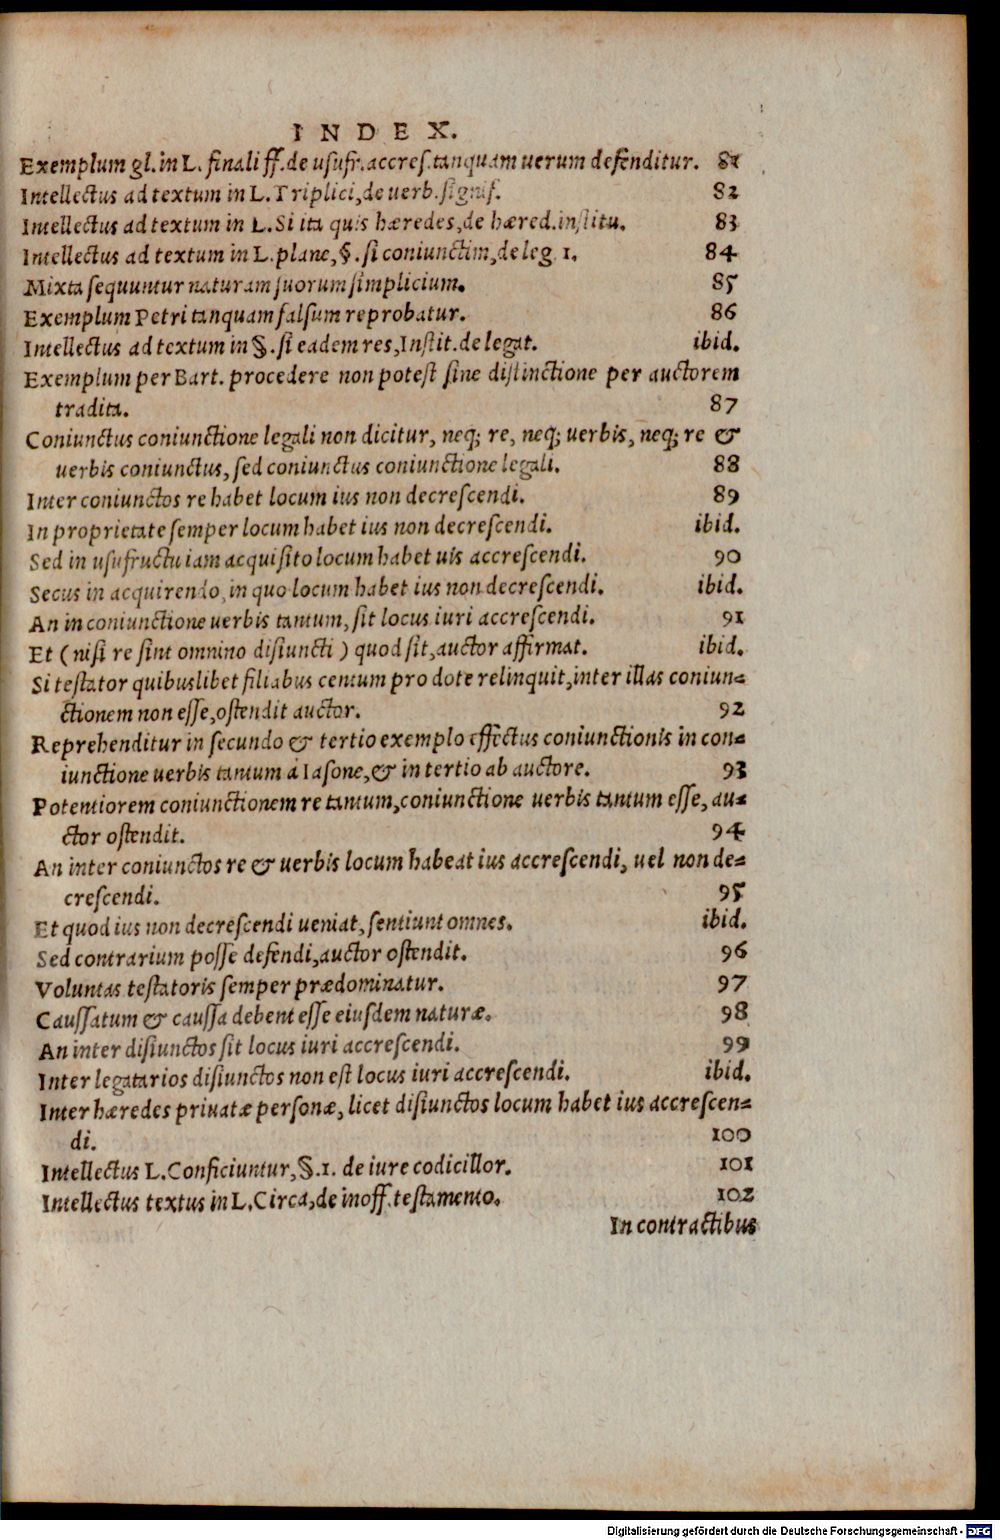 INDEX.
Exemplum gl. in L. finali ff. de usufr. accres. tanquam uerum defenditur. 81
Intellectus ad textum in L. Triplici, de uerb. signif. 82
Intellectus ad textum in L. Si ita quis hæredes, de hæred. institu. 83
Intellectus ad textum in L. plane, §. si coniunctim, de leg. 1. 84
Mixta sequuntur naturam suorum simplicium. 85
Exemplum Petri tanquam falsum reprobatur. 86
Intellectus ad textum in §. si eadem res, Instit. de legat. ibid.
Exemplum per Bart. procedere non potest sine distinctione per auctorem
tradita. 87
Coniunctus coniunctione legali non dicitur, neq; re, neq; uerbis, neq; re &
uerbis coniunctus, sed coniunctus coniunctione legali. 88
Inter coniunctos re habet locum ius non decrescendi. 89
In proprietate semper locum habet ius non decrescendi. ibid.
Sed in usufructu iam acquisito locum habet uis accrescendi. 90
Secus in acquirendo, in quo locum habet ius non decrescendi. ibid.
An in coniunctione uerbis tantum, sit locus iuri accrescendi. 91
Et (nisi re sint omnino disiuncti) quod sit, auctor affirmat. ibid.
Si testator quibuslibet filiabus centum pro dote relinquit, inter illas coniun-
ctionem non esse, ostendit auctor. 92
Reprehenditur in secundo & tertio exemplo effectus coniunctionis in con-
iunctione uerbis tantum á Iasone, & in tertio ab auctore. 93
Potentiorem coniunctionem re tantum, coniunctione uerbis tantum esse, au-
ctor ostendit. 94
An inter coniunctos re & uerbis locum habeat ius accrescendi, uel non de-
crescendi. 95
Et quod ius non decrescendi ueniat, sentiunt omnes. ibid.
Sed contrarium posse defendi, auctor ostendit. 96
Voluntas testatoris semper prædominatur. 97
Caussatum & caussa debent esse eiusdem naturæ. 98
An inter disiunctos sit locus iuri accrescendi. 99
Inter legatarios disiunctos non est locus iuri accrescendi. ibid.
Inter hæredes priuatæ personæ, licet disiunctos locum habet ius accrescen-
di. 100
Intellectus L. Conficiuntur, §. 1. de iure codicillor. 101
Intellectus textus in L. Circa, de inoff. testamento. 102
In contractibus
Digitalisierung gefördert durch die Deutsche Forschungsgemeinschaft - DFG